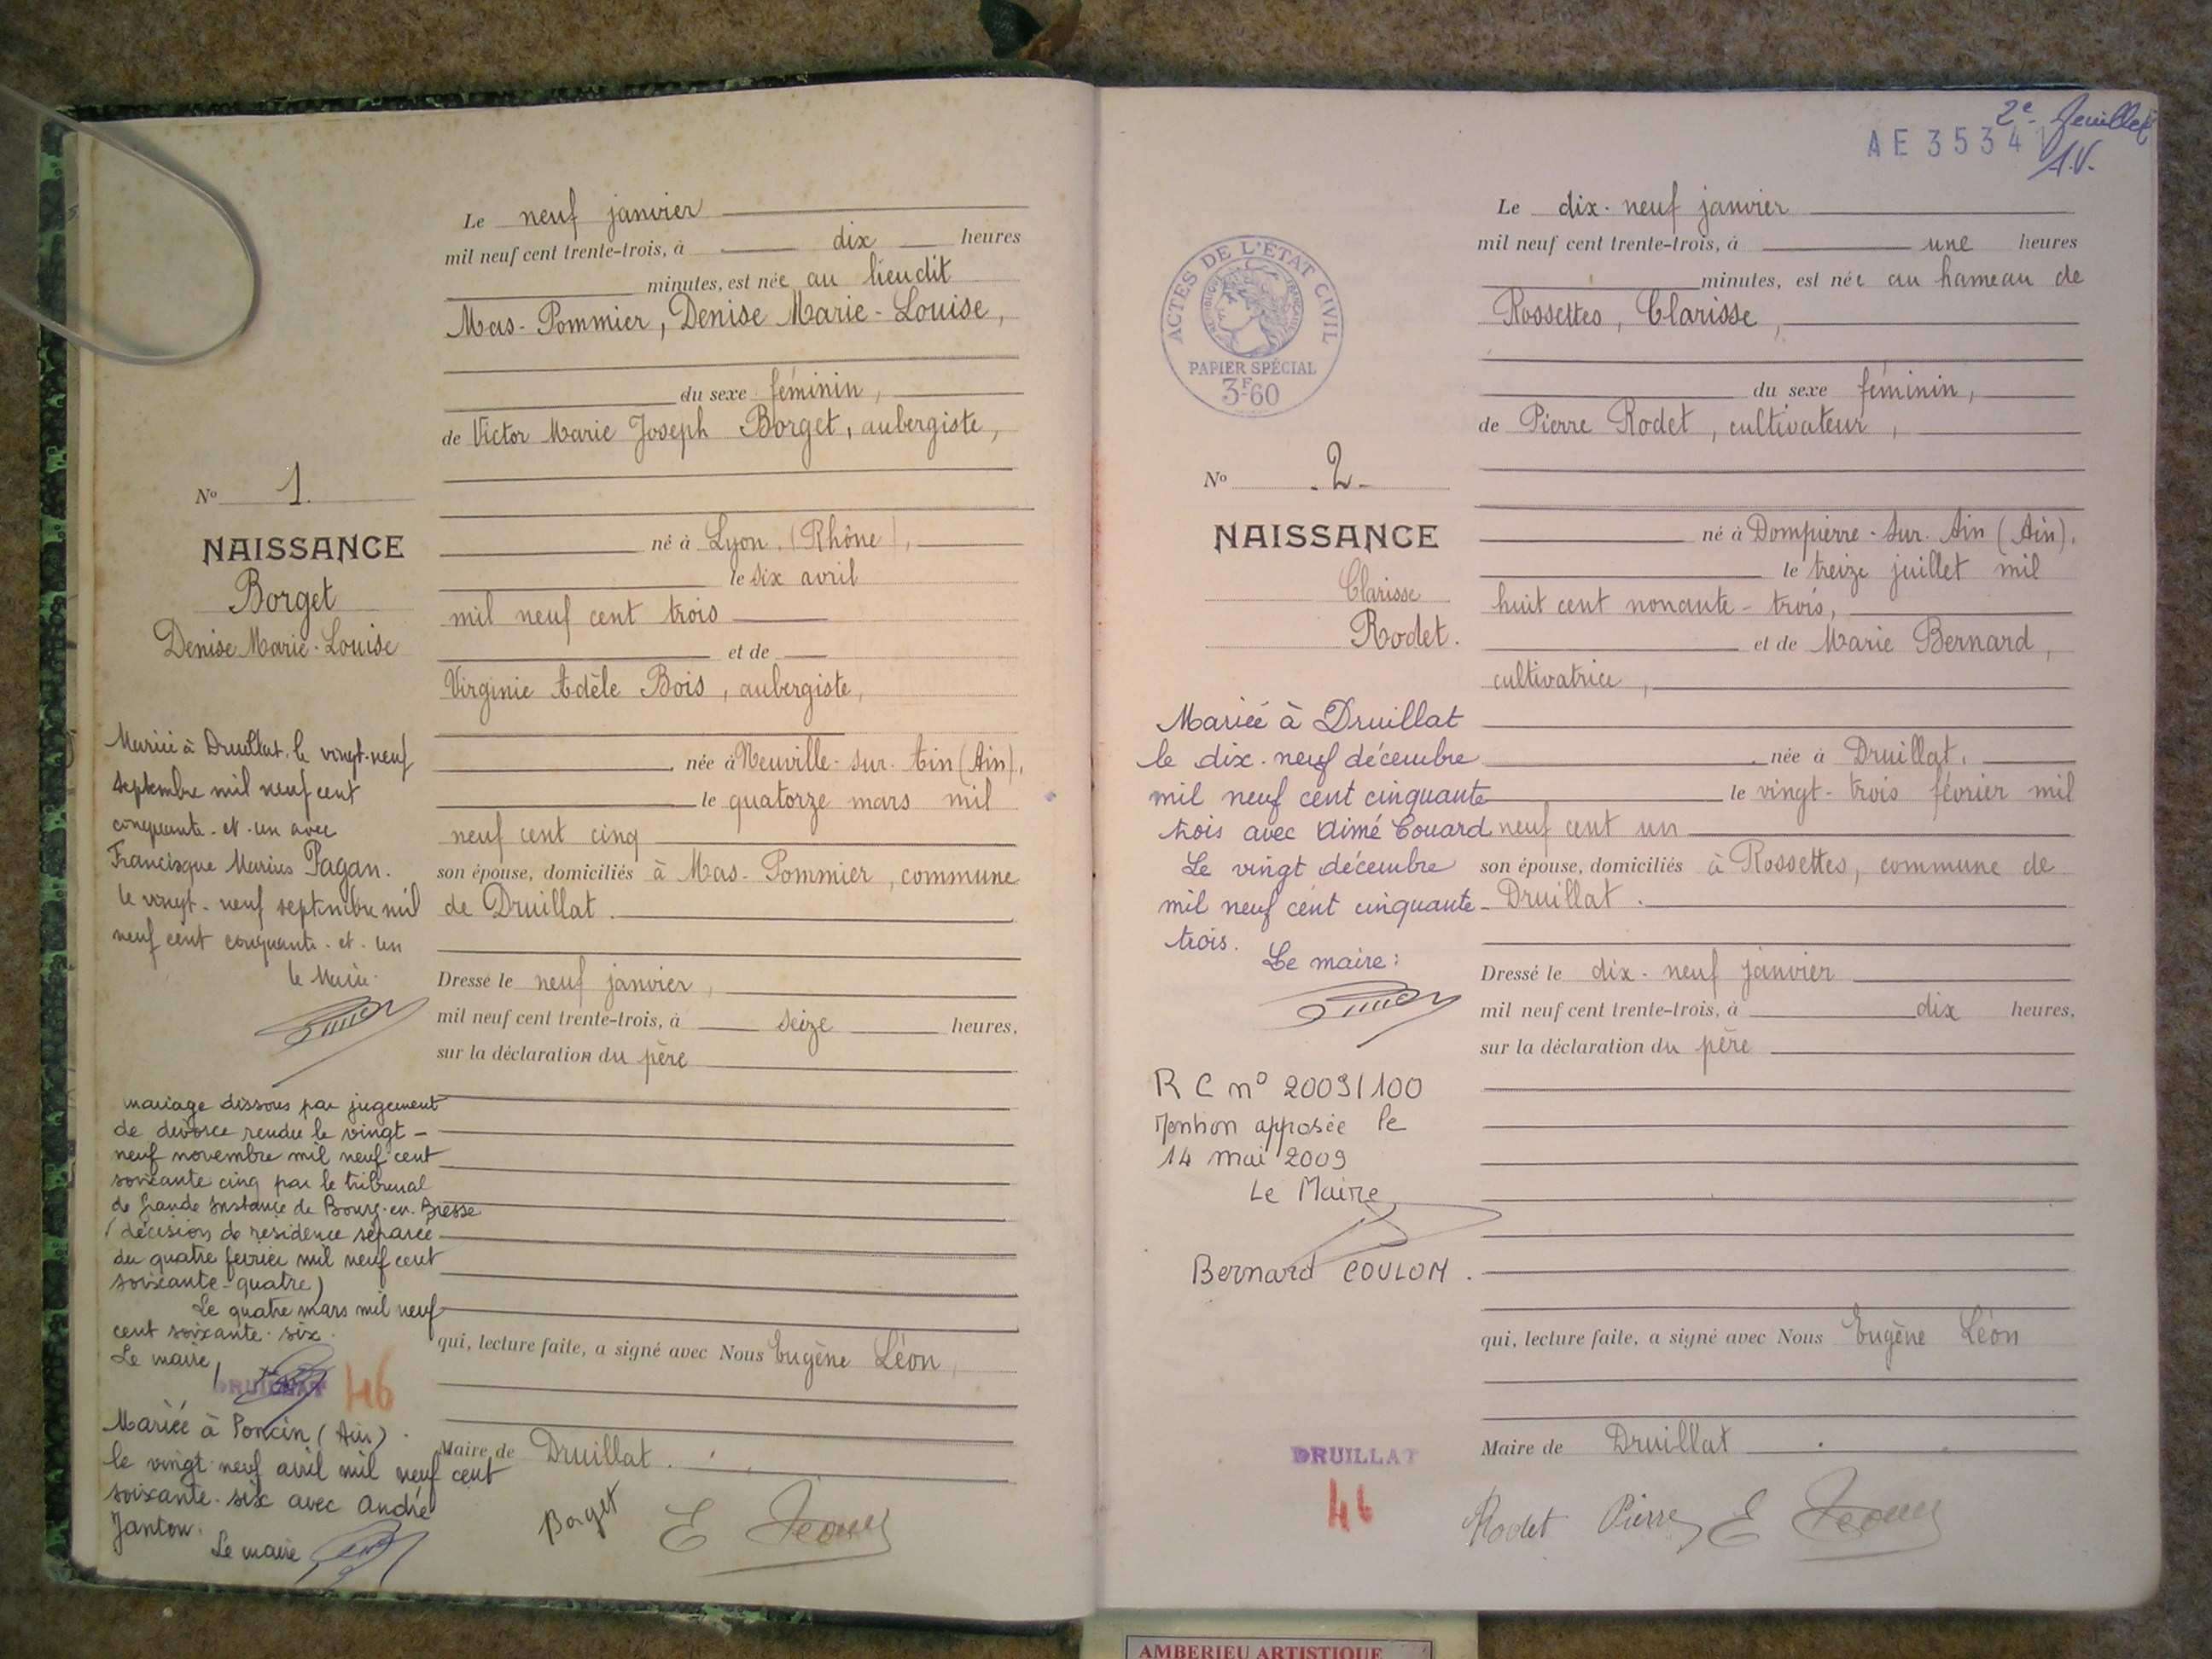 Le neuf janvier
mil neuf cent trente-trois, à dix heures
minutes, est née au lieudit
Mas-Pommier, Denise Marie-Louise,
du sexe féminin,
de Victor Marie Joseph Borget, aubergiste,
No 1.
NAISSANCE
Borget
Denise Marie-Louise
né à Lyon (Rhône),
le six avril
mil neuf cent trois
et de
Virginie Adèle Bois, aubergiste,
née à Neuville-sur-Ain (Ain),
le quatorze mars mil
neuf cent cinq
son épouse, domiciliés à Mas-Pommier, commune
de Druillat.
Dressé le neuf janvier,
mil neuf cent trente-trois, à seize heures,
sur la déclaration du père
qui, lecture faite, a signé avec Nous Eugène Léon,
Maire de Druillat.
Borget E Léon
Mariée à Druillat, le vingt-neuf
septembre mil neuf cent
cinquante-et-un avec
Francisque Marius Pagan.
le vingt-neuf septembre mil
neuf cent cinquante-et-un
le Maire
mariage dissous par jugement
de divorce rendu le vingt-
neuf novembre mil neuf cent
soixante cinq par le tribunal
de Grande Instance de Bourg-en-Bresse
(décision de résidence séparée
du quatre février mil neuf cent
soixante-quatre)
Le quatre mars mil neuf
cent soixante-six.
Le maire,
DRUILLAT 46
Mariée à Poncin (Ain)
le vingt-neuf avril mil neuf cent
soixante-six avec André
Janton.
Le maire
2e feuillet
AE 3534
A.V.
Le dix-neuf janvier
mil neuf cent trente-trois, à une heures
minutes, est née au hameau de
Rossettes, Clarisse,
du sexe féminin,
de Pierre Rodet, cultivateur,
ACTES DE L'ÉTAT CIVIL
RÉPUBLIQUE FRANÇAISE
PAPIER SPÉCIAL
3F60
No 2
NAISSANCE
Clarisse
Rodet.
né à Dompierre-sur-Ain (Ain),
le treize juillet mil
huit cent nonante-trois,
et de Marie Bernard,
cultivatrice,
née à Druillat,
le vingt-trois février mil
neuf cent un
son épouse, domiciliés à Rossettes, commune de
Druillat.
Dressé le dix-neuf janvier
mil neuf cent trente-trois, à dix heures,
sur la déclaration du père
qui, lecture faite, a signé avec Nous Eugène Léon
Maire de Druillat
Rodet Pierre E Léon
Mariée à Druillat
le dix-neuf décembre
mil neuf cent cinquante
trois avec Aimé Couard
Le vingt décembre
mil neuf cent cinquante-
trois.
Le maire:
R C n° 2009/100
Mention apposée le
14 mai 2009
Le Maire
Bernard COULON.
DRUILLAT
46
AMBERIEU ARTISTIQUE